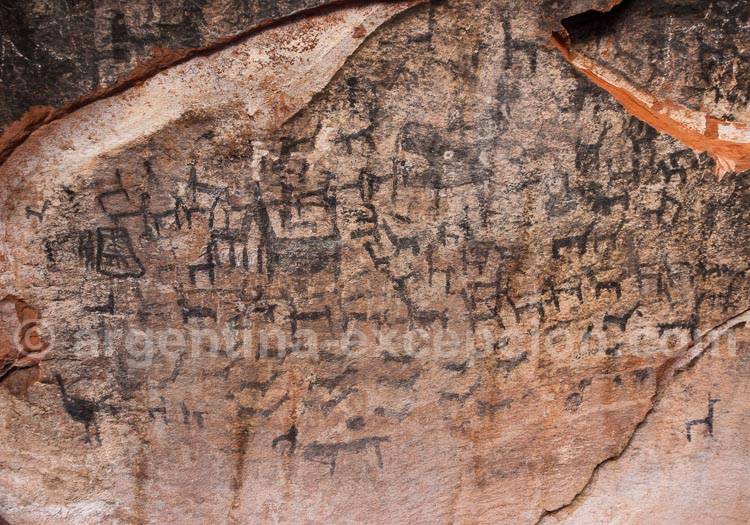 © argentina-excepcion.com